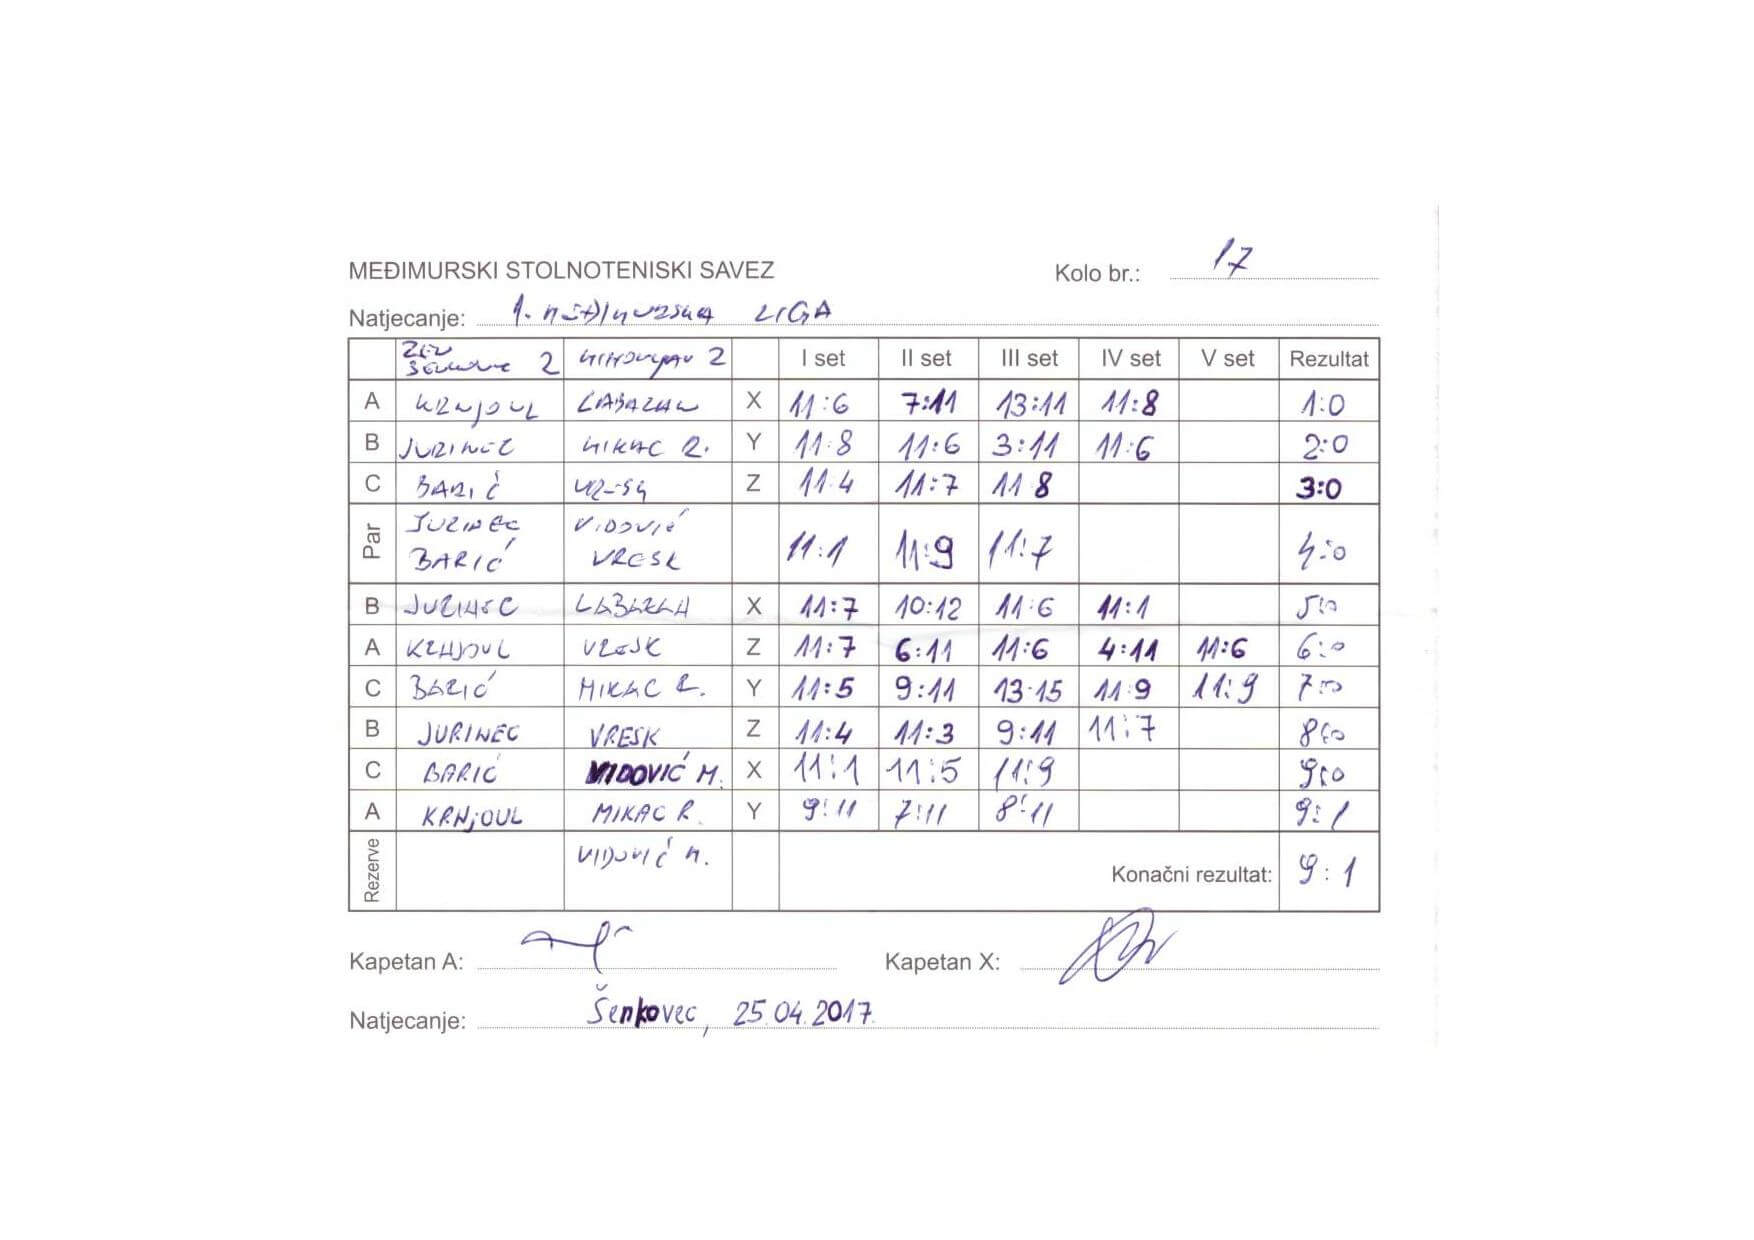 MEĐIMURSKI STOLNOTENISKI SAVEZ Kolo br.: 17
Natjecanje: 1. MEĐIMURSKA LIGA
2 2 I set II set III set IV set V set Rezultat
A KRNJOUL LABAZAN X 11:6 7:11 13:11 11:8 1:0
B JURINEC MIKAC R. Y 11:8 11:6 3:11 11:6 2:0
C BARIĆ VRESK Z 11:4 11:7 11:8 3:0
Par JURINEC BARIĆ VIDOVIĆ VRESK 11:1 11:9 11:7 4:0
B JURINEC LABAZAN X 11:7 10:12 11:6 11:1 5:0
A KRNJOUL VRESK Z 11:7 6:11 11:6 4:11 11:6 6:0
C BARIĆ MIKAC R. Y 11:5 9:11 13-15 11:9 11:9 7:0
B JURINEC VRESK Z 11:4 11:3 9:11 11:7 8:0
C BARIĆ VIDOVIĆ M. X 11:1 11:5 11:9 9:0
A KRNJOUL MIKAC R. Y 9:11 7:11 8:11 9:1
Rezerve VIDOVIĆ M. Konačni rezultat: 9:1
Kapetan A: Kapetan X:
Natjecanje: Šenkovec, 25.04.2017.